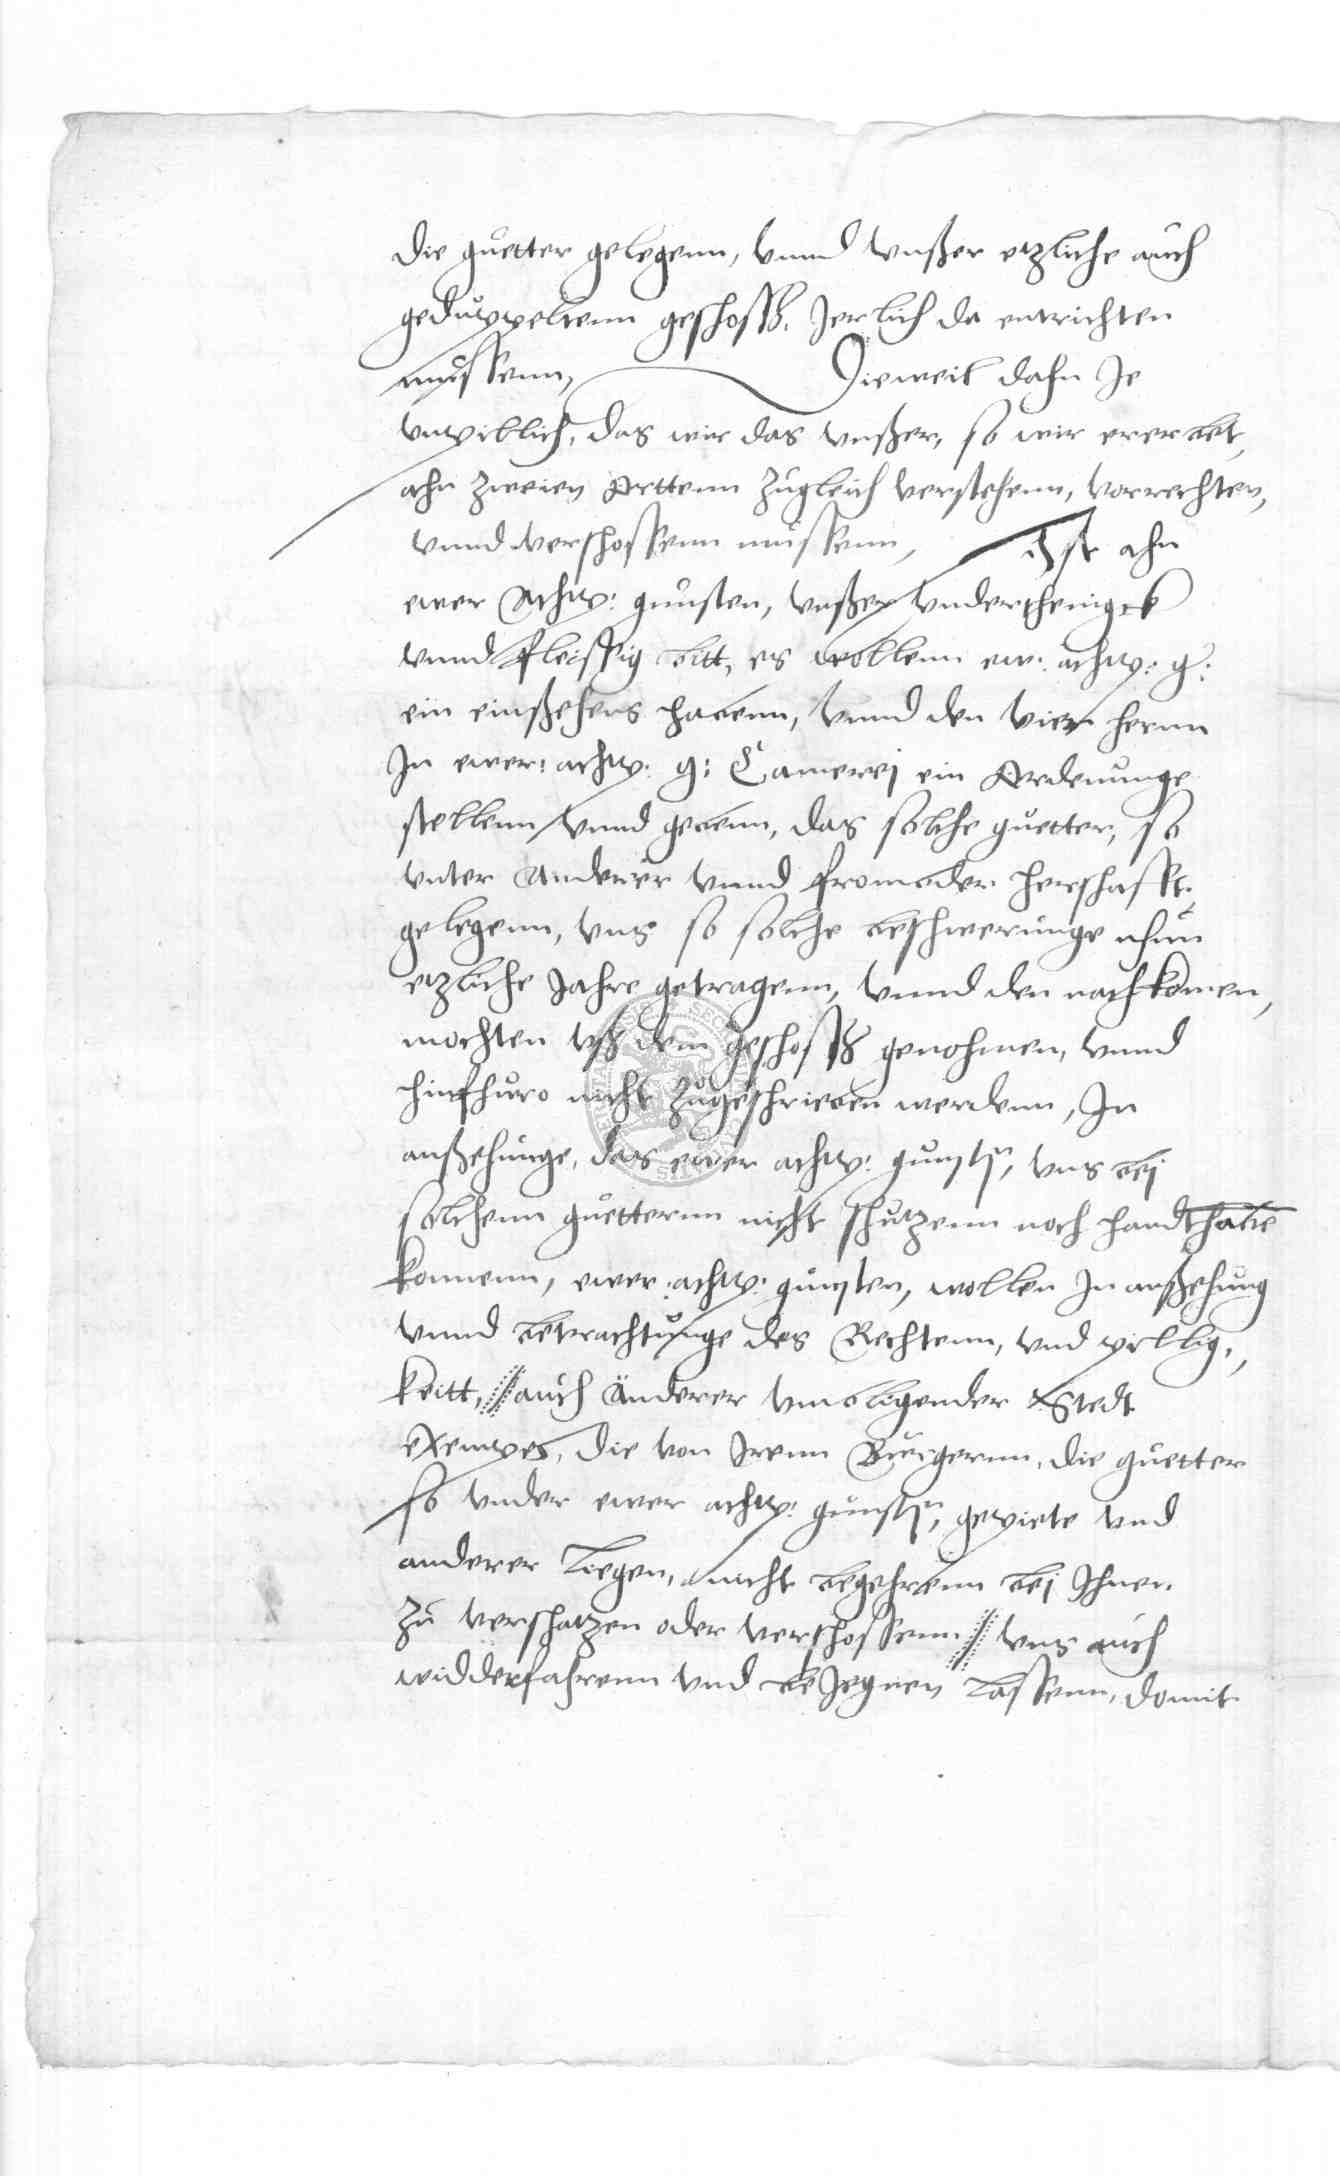 die guetter gelegenn, vnnd vnßer etzliche auch
geduppeltenn geschosß, Jerlich da entrichten
mussenn, Dieweil dahn Je
vnpillich, das wir das vnßer, so wir ererbt,
ahn zweien Ortten zugleich verstehenn, vorrechten,
vnnd verschossenn mussenn, Ist ahn
ewer Achtp: gunsten, vnßer vnderthenigk
vnnd fleissig bitt, es wollenn ew: achtp: g:
ein einßehens habenn, vnnd den vier hernn
In ewer: achtp: g: Camerej ein Ordenunge
stellenn vnnd gebenn, das solche guetter, so
vnter Anderer vnnd frombder herschafft
gelegenn, vns so solche beschwerunge nhun
etzliche Jahre getragenn, vnnd den nachkomen,
mochten vß dem geschosß genohmen, vnnd
hinfhuro nicht zugeschrieben werdenn, In
anßehunge, das ewer achtp: gunstn, vns bej
solchenn guetternn nicht schutzenn noch handthabe
konnenn, ewer: achtp: gunsten, wollen In anßehung
vnnd betrachtunge des Rechtenn, vnd pillig,
keitt, auch Anderer vmbligender Stedt
exempes, die von Irenn Burgernn, die guetter
so vnder ewer achtp: gunstn, gepiete vnd
anderer liegen, nicht begehrenn bej Ihnen
zu verschatzen oder verschossenn vns auch
widderfahrenn vnd beJegnen lassenn, domit